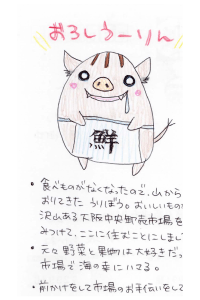 おろしうーりん
鮮
・食べものがなくなったので、山から
おりてきた うりぼう。おいしいもの
沢山ある大阪中央卸売市場を
みつけて、ここに住むことにしま
・元々野菜と果物は大好きだっ
市場で海の幸にハマる。
・前かけをして市場のお手伝いをして